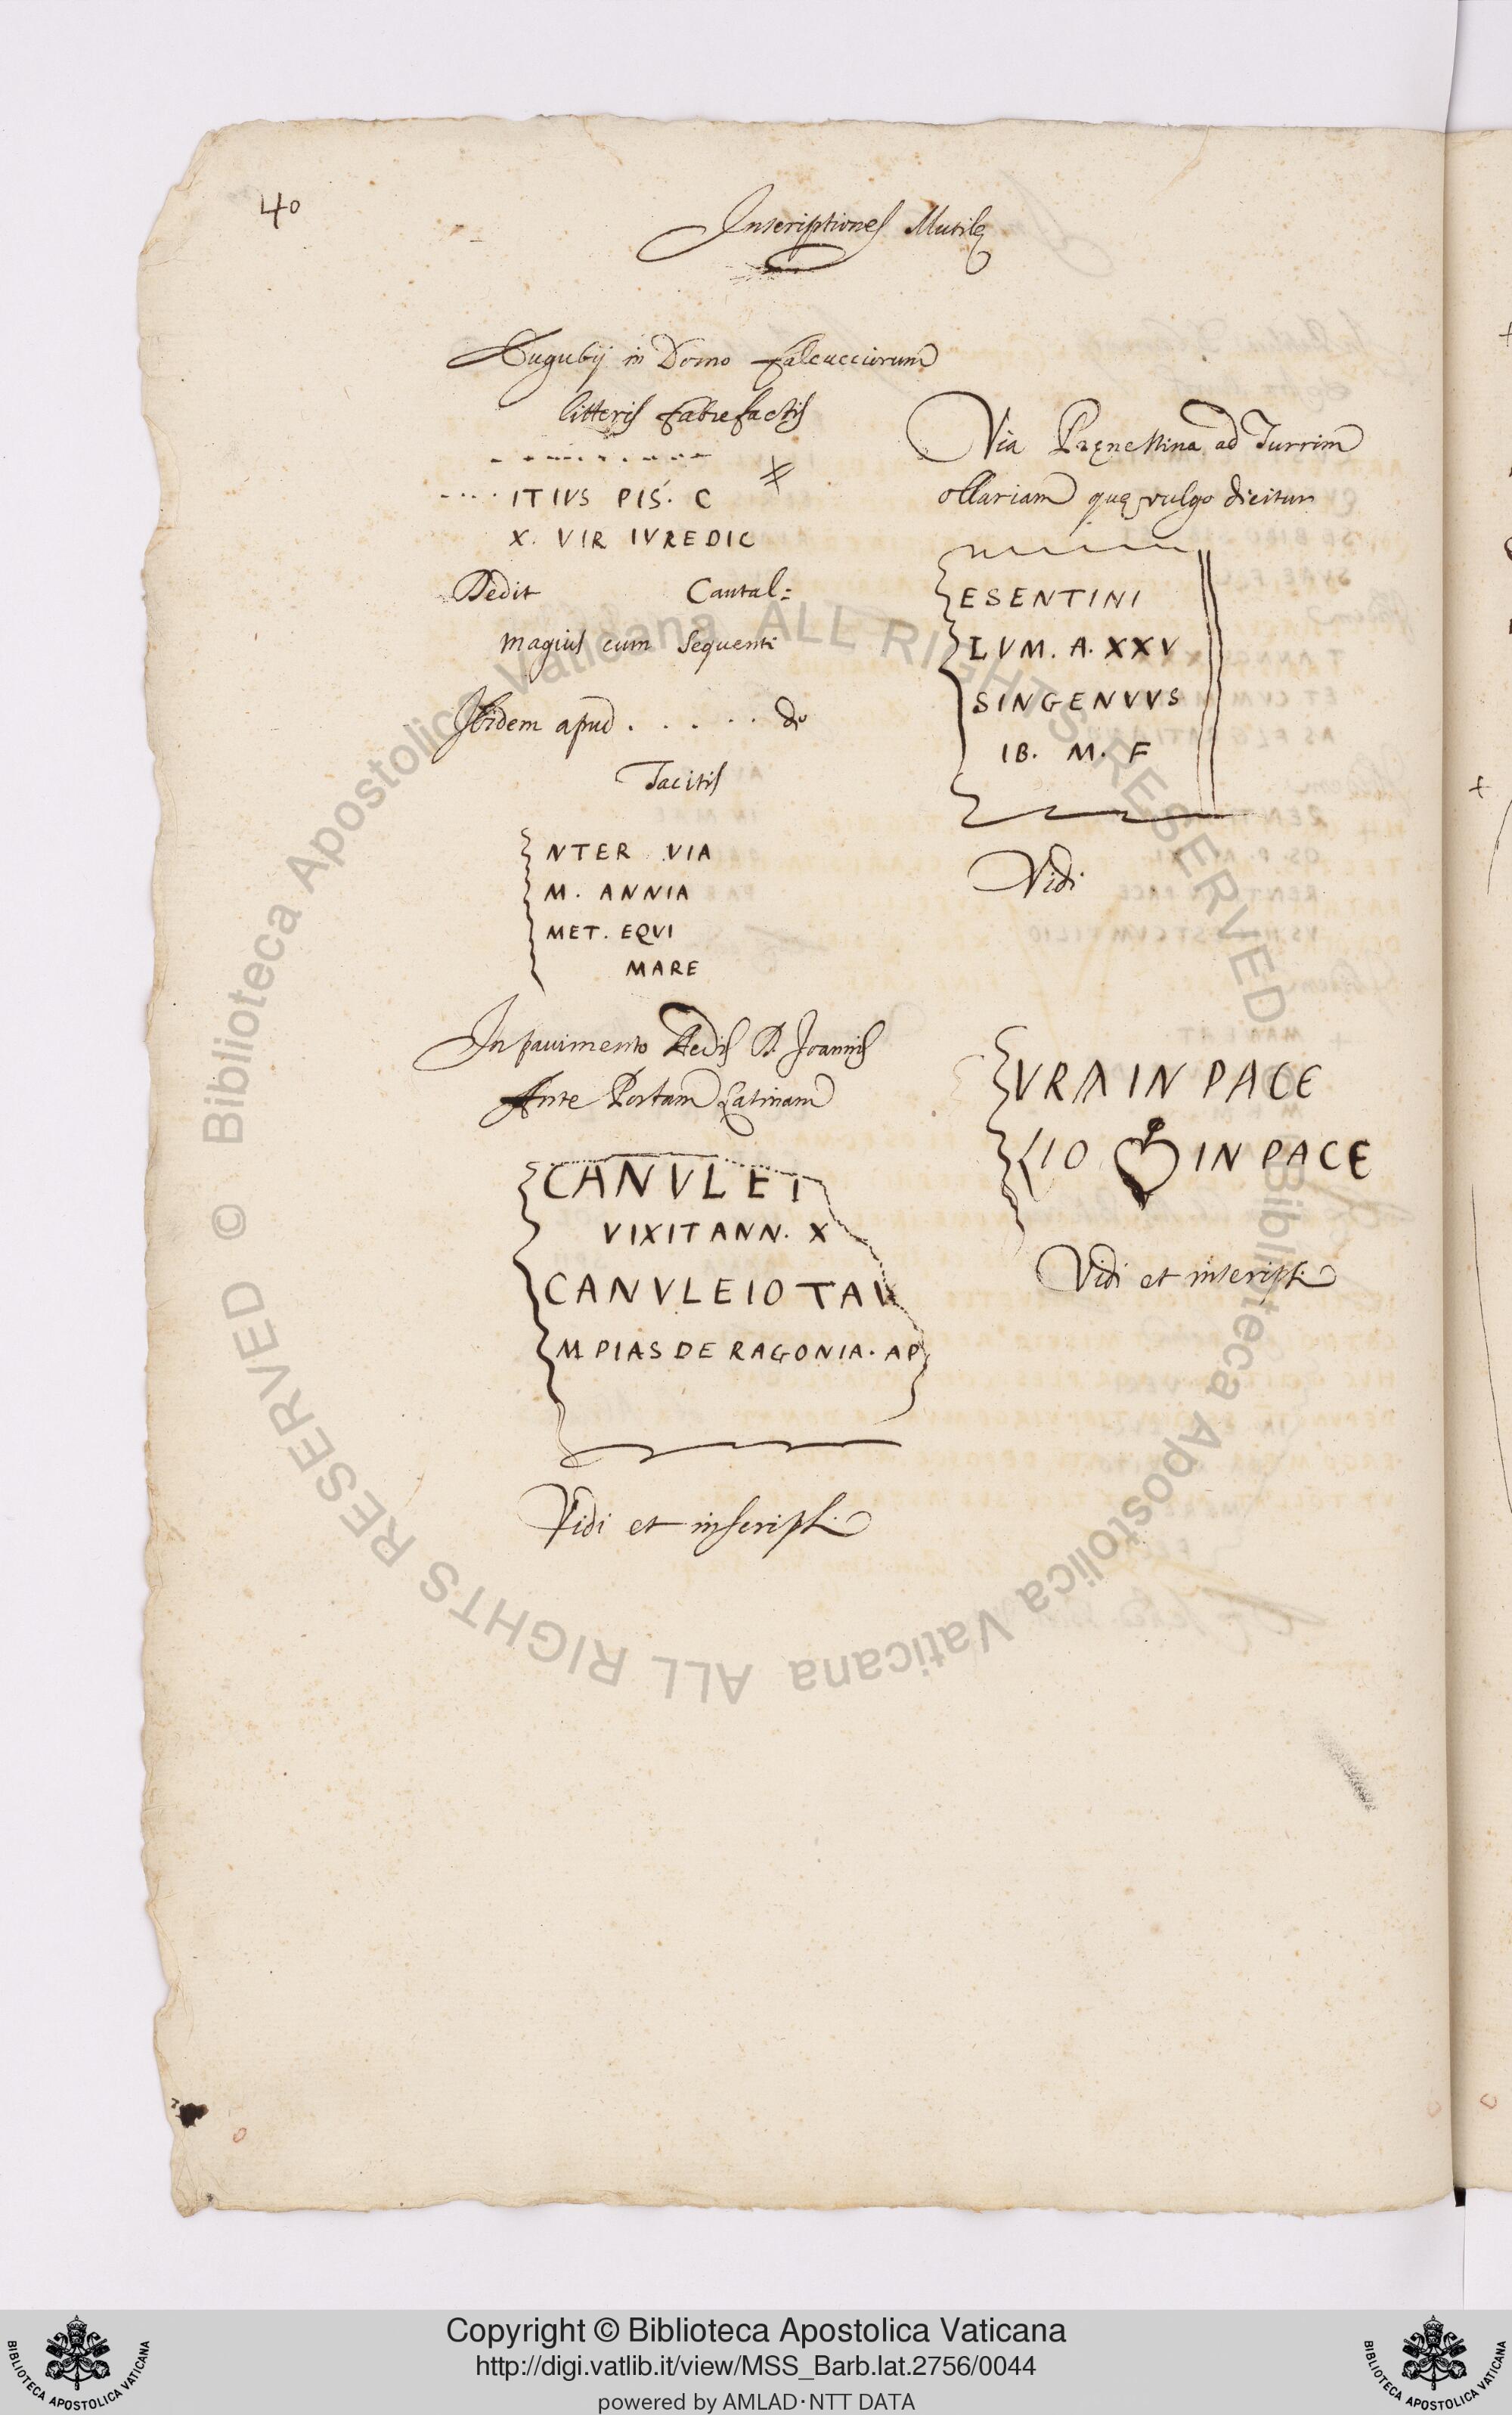 40
Inscriptiones Mutilę
Eugubij in Domo Falcucciorum
litteris fabrefactis
. . . . ITIVS PIS. C
X. VIR IVREDIC
Dedit Cantal=
magius cum sequenti
Ibidem apud . . . . . . de
Tacitis
NTER VIA
M. ANNIA
MET. EQVI
MARE
In pauimento Aedis D. Joannis
Ante Portam Latinam
CANVLEI
VIXIT ANN. X
CANVLEIO TAV
MPIAS DE RAGONIA. AP
Vidi et inscripsi
Via Pręnestina ad Turrim
ollariam quę vulgo dicitur
ESENTINI
LVM. A. XXV
SINGENVVS
IB. M. F
Vidi
VRA IN PACE
IO IN PACE
Vidi et inscripsi
© Biblioteca Apostolica Vaticana ALL RIGHTS RESERVED
© Biblioteca Apostolica Vaticana ALL RIGHTS RESERVED
BIBLIOTECA APOSTOLICA VATICANA
Copyright © Biblioteca Apostolica Vaticana
http://digi.vatlib.it/view/MSS_Barb.lat.2756/0044
powered by AMLAD·NTT DATA
BIBLIOTECA APOSTOLICA VATICANA